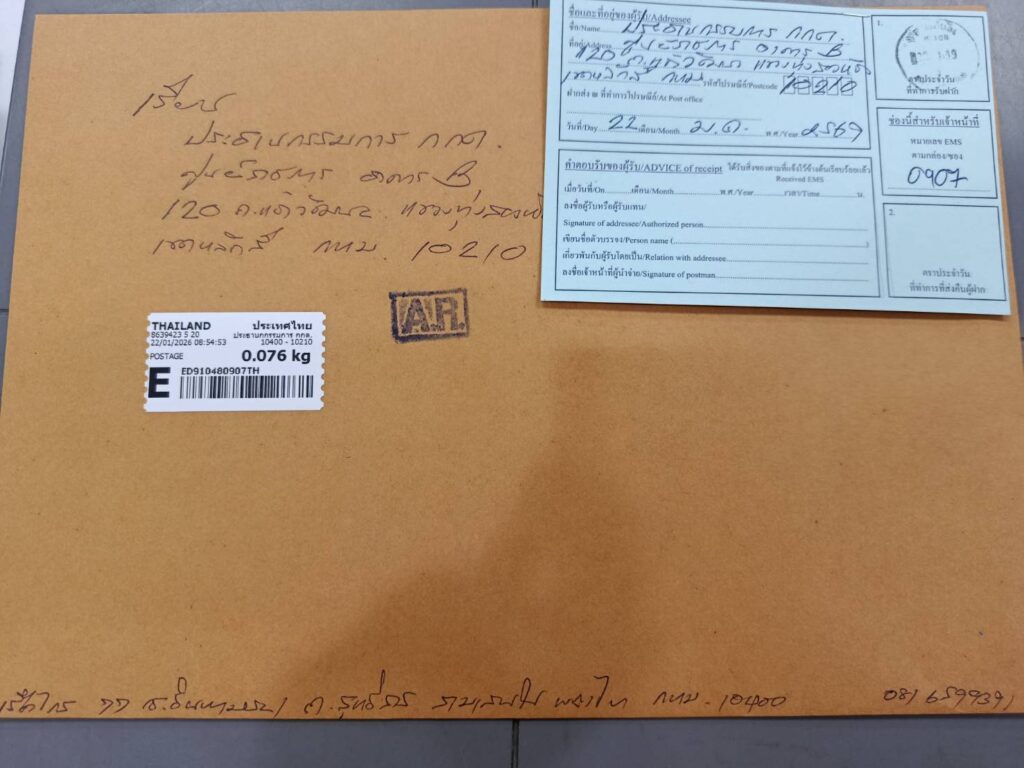 เรียน
ประธานกรรมการ กกต.
ศูนย์ราชการ อาคาร B
120 ถ.แจ้งวัฒนะ แขวงทุ่งสองห้อง
เขตหลักสี่ กทม. 10210
THAILAND ประเทศไทย
8639423 5 20 ประธานกกรรมการ กกต.
22/01/2026 08:54:53 10400 - 10210
POSTAGE 0.076 kg
E ED910480907TH
A.R.
ชื่อและที่อยู่ของผู้รับ/Addressee
ชื่อ/Name ประธานกรรมการ กกต.
ที่อยู่/Address ศูนย์ราชการ อาคาร B
120 ถ.แจ้งวัฒนะ แขวงทุ่งสองห้อง
เขตหลักสี่ กทม รหัสไปรษณีย์/Postcode 10210
ฝากส่ง ณ ที่ทำการไปรษณีย์/At Post office
วันที่/Day 22 เดือน/Month ม.ค. พ.ศ./Year 2569
คำตอบรับของผู้รับ/ADVICE of receipt ได้รับสิ่งของตามที่แจ้งไว้ข้างต้นเรียบร้อยแล้ว
Received EMS
เมื่อวันที่/On เดือน/Month พ.ศ./Year เวลา/Time น.
ลงชื่อผู้รับหรือผู้รับแทน/
Signature of addressee/Authorized person
เขียนชื่อตัวบรรจง/Person name ( )
เกี่ยวพันกับผู้รับโดยเป็น/Relation with addressee
ลงชื่อเจ้าหน้าที่ผู้นำจ่าย/Signature of postman
1.
ตราประจำวัน
ที่ทำการรับฝาก
ช่องนี้สำหรับเจ้าหน้าที่
หมายเลข EMS
ตามกล่อง/ซอง
0907
2.
ตราประจำวัน
ที่ทำการที่ส่งคืนผู้ฝาก
77 ถ.สุทธิสาร สามเสนใน พญาไท กทม. 10400 081 6599391